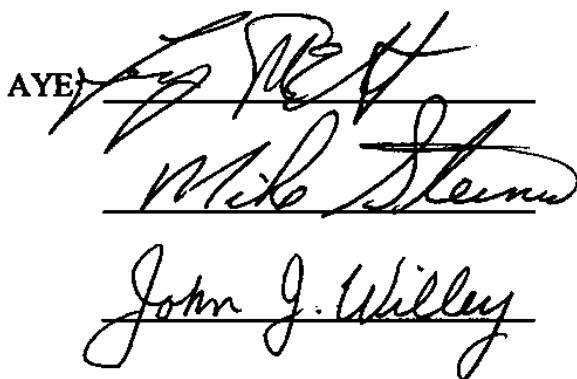 AYE:
Mike Steiner
John J. Willey